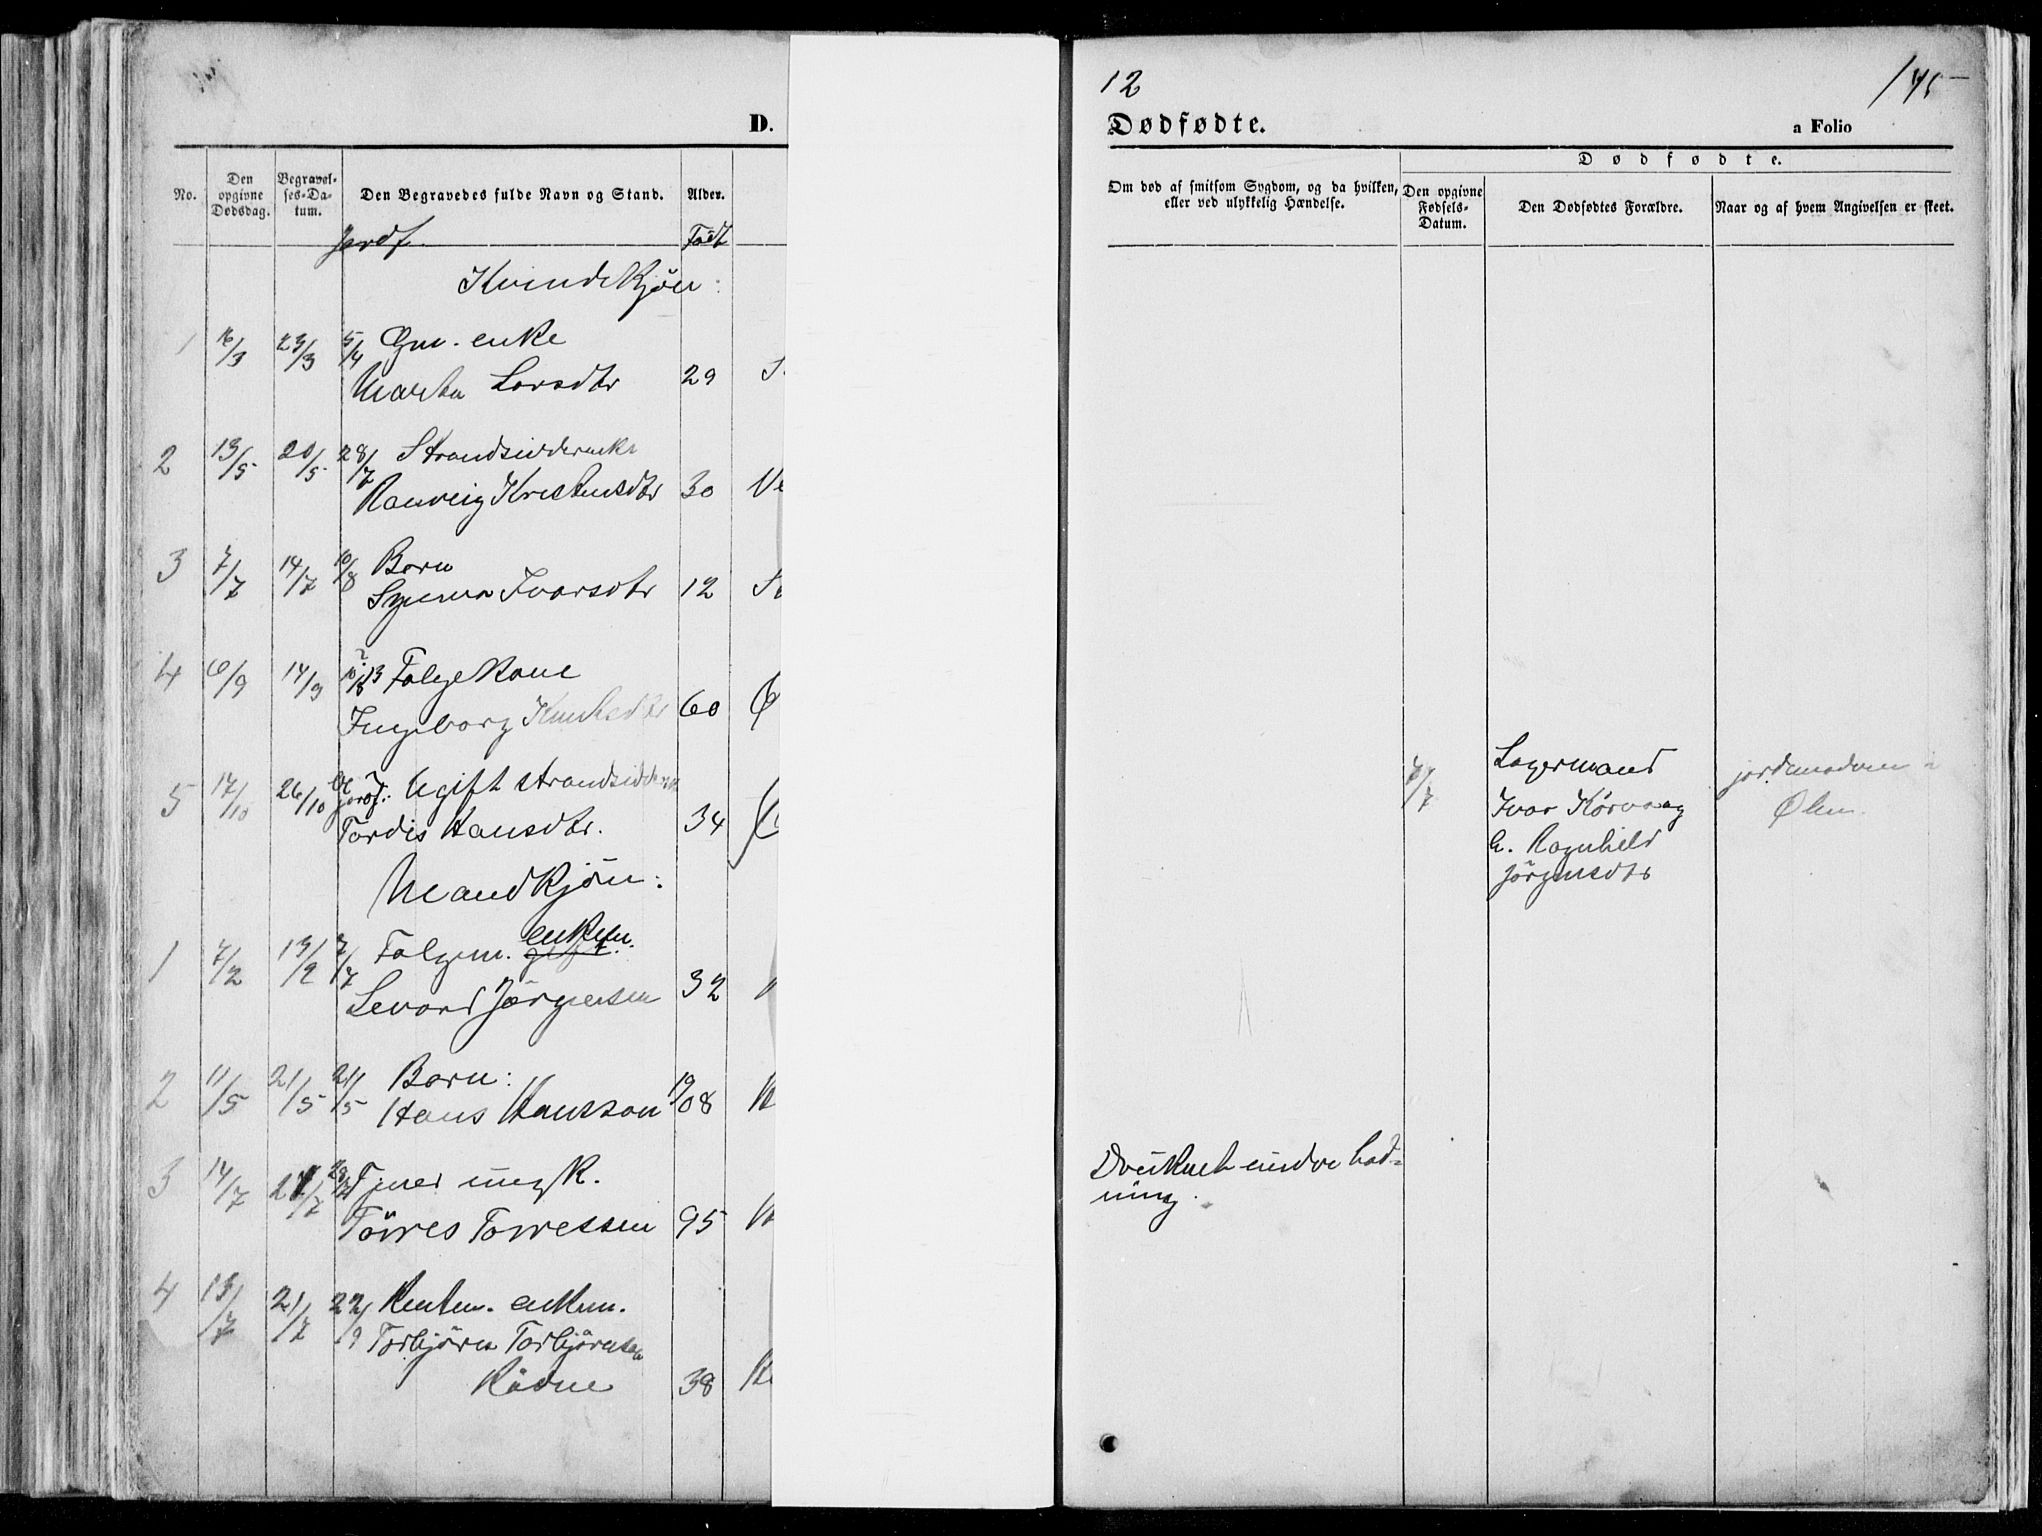 D.
No.
Den opgivne Dødsdag.
Begravel-ses-Da-tum.
Den Begravedes fulde Navn og Stand.
Alder.
Jordf.
Født
Kvindekjön:
1 16/3 23/3 5/4 Gm. enke
Marta Larsdtr 29
2 13/5 20/5 28/7 Strandsidderenke
Ranveig Kristensdtr 30
3 7/7 14/7 10/8 Barn
Synnva Ivarsdtr 12
4 6/9 14/9 Folgekone
Ingeborg Knutsdtr 60
5 17/10 26/10 jordf: Ugift strandsidder
Tordis Hansdtr. 34
Mandkjön:
enkem.
1 7/2 13/2 3/7 Folgem. gift.
Sevard Jörgensen 32
2 11/5 21/5 21/5 Barn:
Hans Hansson 19/08
3 14/7 21/7 Tjener ungk.
Törres Torressen 95
4 13/7 21/7 22/9 Renten. enkem.
Torbjörn Torbjörnsen
Rådne 38
12
145
Dødfødte.
a Folio
Dødfødte.
Om død af smitsom Sygdom, og da hvilken,
eller ved ulykkelig Hændelse.
Den opgivne
Fødsels-
Datum.
Den Dødfødtes Forældre.
Naar og af hvem Angivelsen er skeet.
7/7
Lagermand
Ivar Körvaag
h. Ragnhild
Jörgensdtr
jordmoderen i
Ølen.
Druknet under bad-
ning.